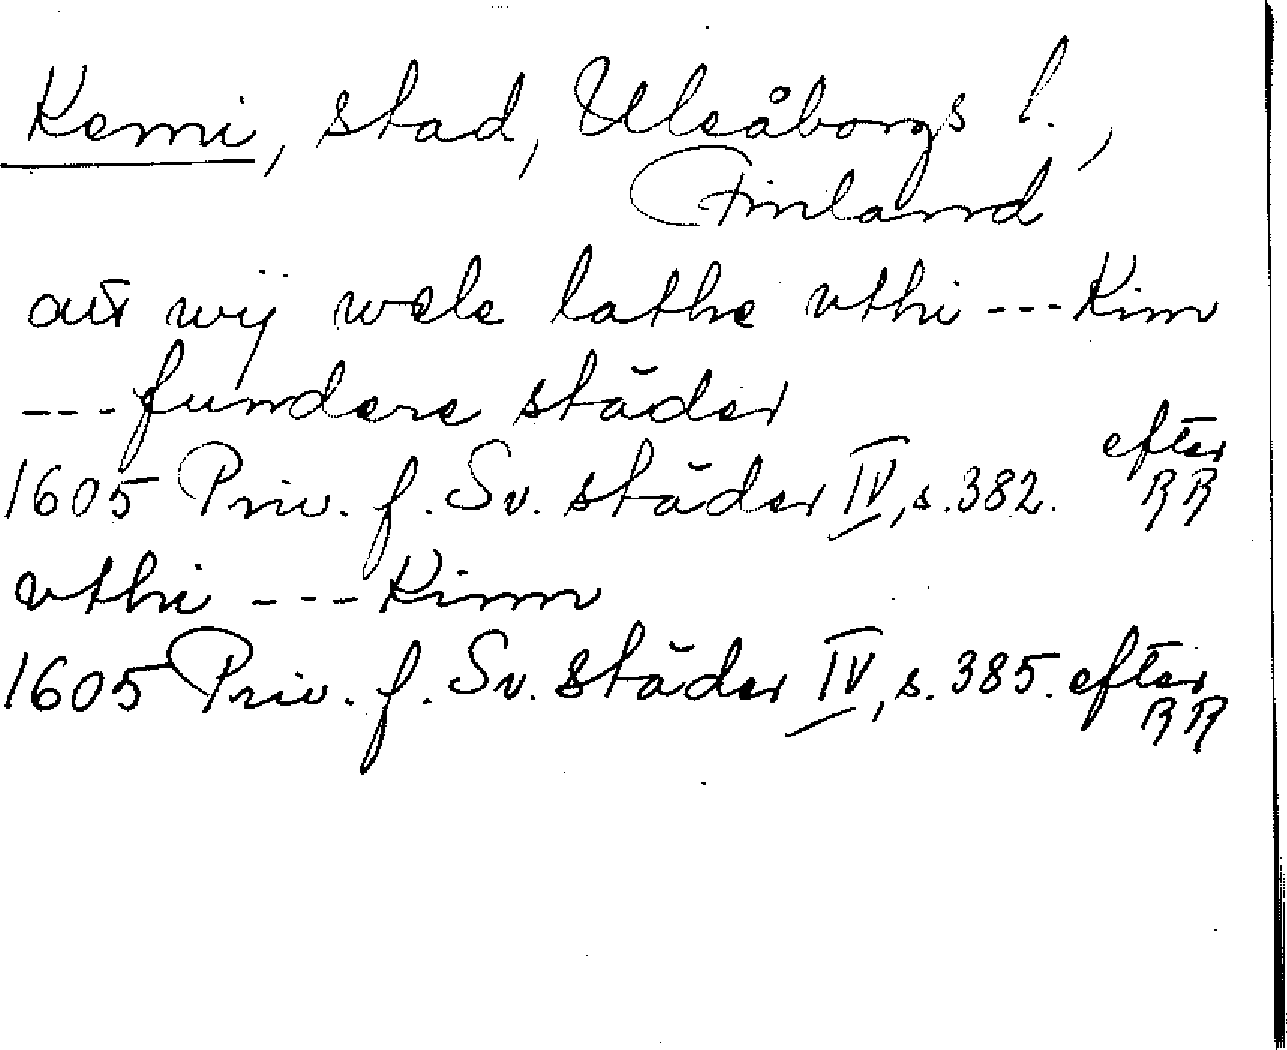 Kemi, stad, Uleåborgs l.,
Finland
att wij wele lathe vthi --- Kim
--- fundere städer
1605 Priv. f. Sv. städer IV, s. 382. efter RR
vthi --- Kimm
1605 Priv. f. Sv. städer IV, s. 385. efter RR